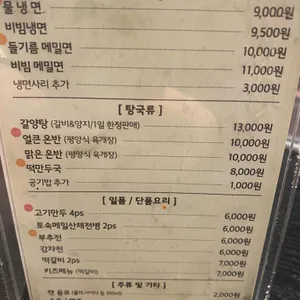 물 냉 면 9,000원
비빔냉면 9,500원
들기름 메밀면 10,000원
비빔 메밀면 11,000원
냉면사리 추가 3,000원
[ 탕국류 ]
갈양탕 (갈비&양지/1일 한정판매) 13,000원
얼큰 온반 (평양식 육개장) 10,000원
맑은 온반 (평양식 육개장) 10,000원
떡만두국 8,000원
공기밥 추가 1,000원
[ 일품 / 단품요리 ]
고기만두 4ps 6,000원
토속메밀산채전병 2ps 6,000원
부추전 6,000원
감자전 6,000원
떡갈비 2ps 6,000원
키즈메뉴 (떡갈비) 7,000원
[ 주류 및 기타 ]
캔 음료 2,000원